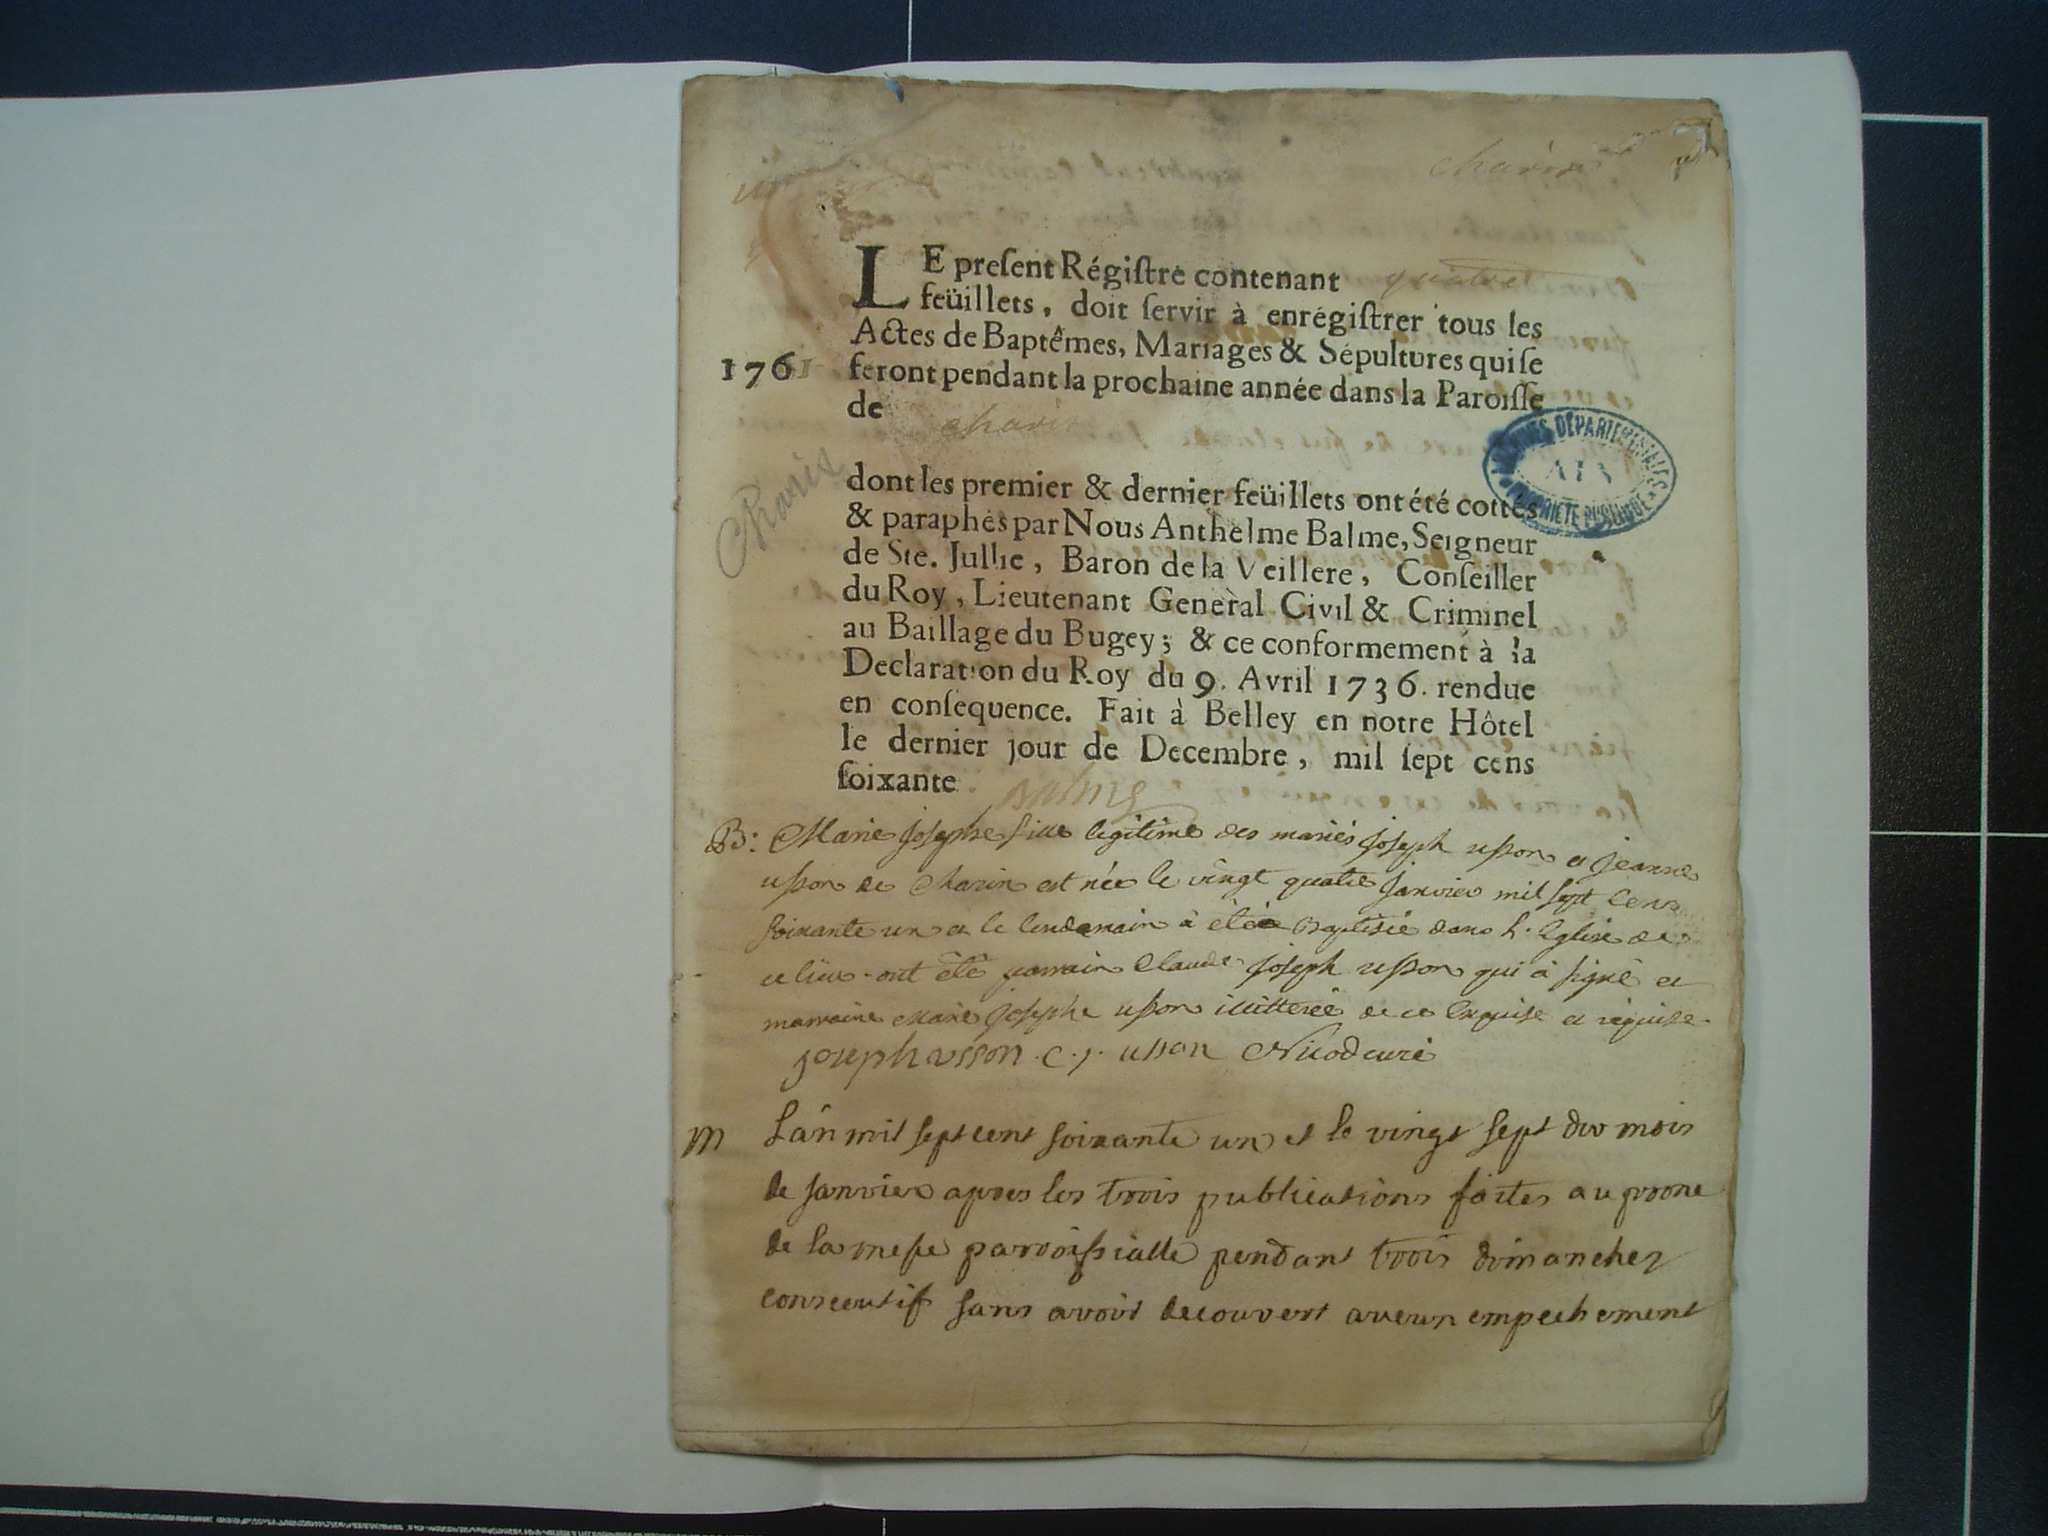 charix
LE present Régistre contenant quatre
feüillets, doit servir à enrégistrer tous les
Actes de Baptêmes, Mariages & Sépultures qui se
1761 feront pendant la prochaine année dans la Paroisse
de charix
Charix
dont les premier & dernier feüillets ont été cottés
& paraphés par Nous Anthelme Balme, Seigneur
de Ste. Jullie, Baron de la Veillere, Conseiller
du Roy, Lieutenant General Civil & Criminel
au Baillage du Bugey; & ce conformement à la
Declaration du Roy du 9. Avril 1736. rendue
en consequence. Fait à Belley en notre Hôtel
le dernier jour de Decembre, mil sept cens
soixante. Balme
ARCHIVES DÉPARTEMENTALES
AIN
PROPRIÉTÉ PUBLIQUE
B: Marie Josephe fille legitime des mariés Joseph usson et Jeanne
usson de Charix est née le vingt quatre Janvier mil sept cens
soixante un et le lendemain à été Baptisée dans l'Eglise de
ce lieu ont été parrain Claude Joseph usson qui à signé et
marraine Marie Josephe usson illitterée de ce enquise et requise.
joseph usson c. j. usson Nicod curé
M L'an mil sept cent soixante un et le vingt sept du mois
de Janvier apres les trois publications faites au prone
de la messe parroissialle pendant trois dimanches
consecutif sans avoir decouvert aucun empechement